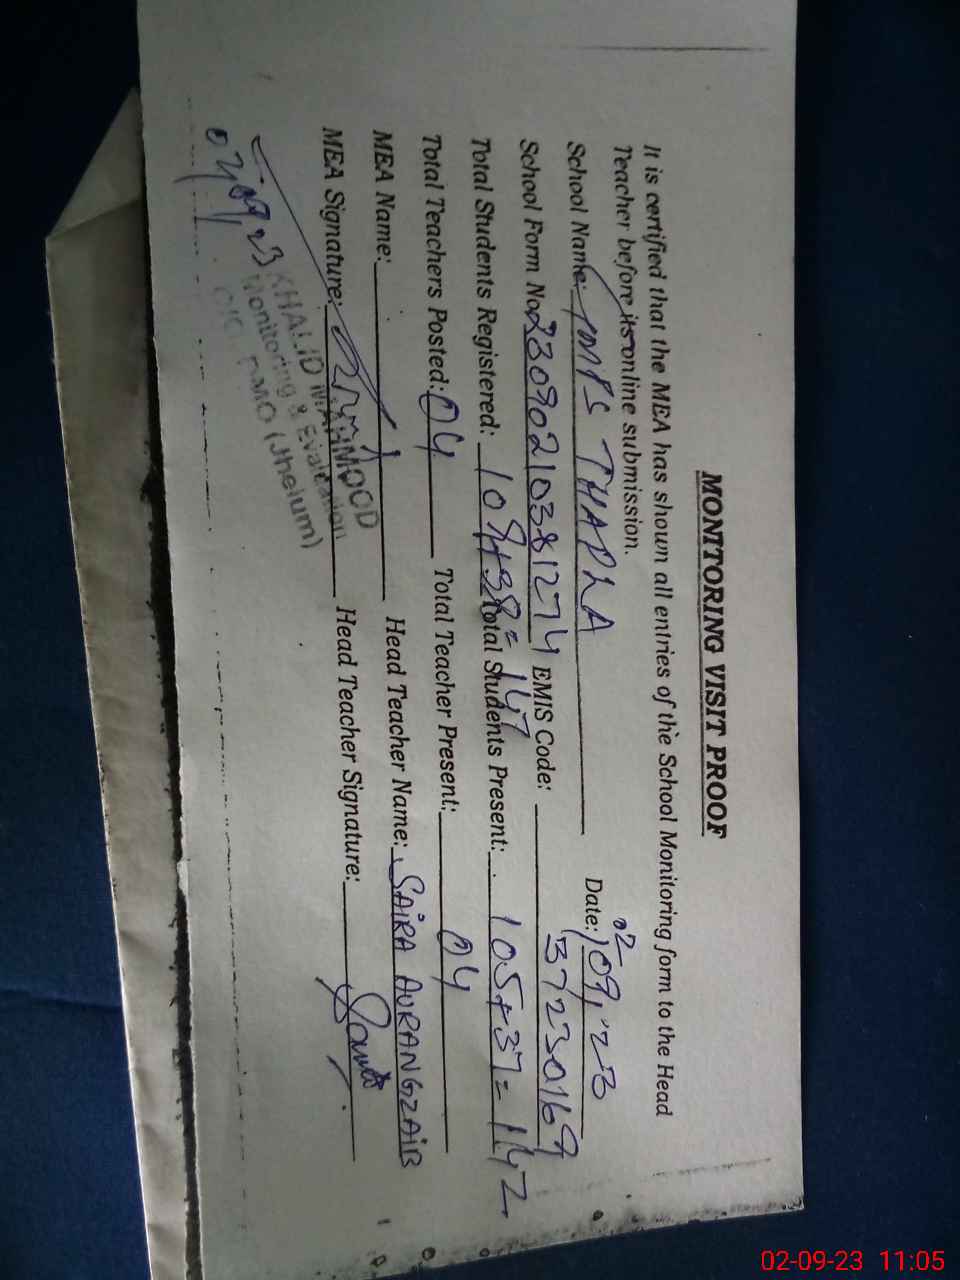 MONITORING VISIT PROOF
It is certified that the MEA has shown all entries of the School Monitoring form to the Head
Teacher before its online submission.
School Name: MPS THAPLA Date: 02/09/23
School Form No. 23090210381274 EMIS Code: 37230169
Total Students Registered: 109+38=147 Total Students Present: 105+37=142
Total Teachers Posted: 04 Total Teacher Present: 04
MEA Name: Head Teacher Name: SAIRA AURANGZAIB
MEA Signature: Head Teacher Signature: Saira
KHALID MAHMOOD
Monitoring & Evaluation
PMO (Jhelum)
02/09/23
02-09-23 11:05